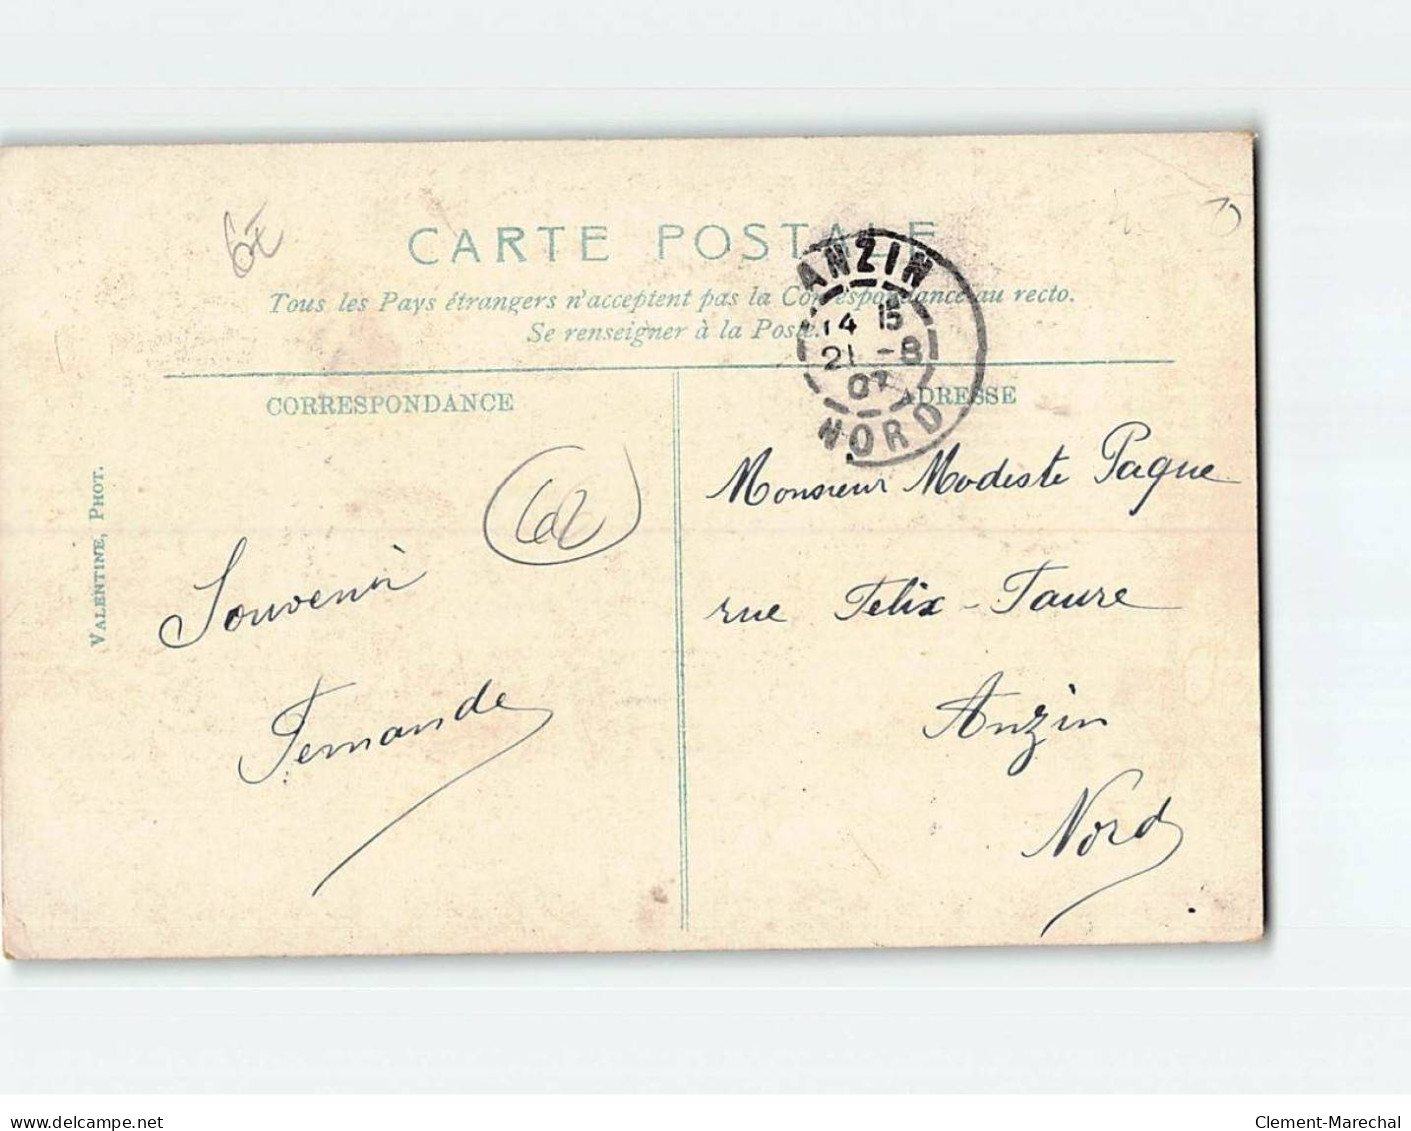 6€
CARTE POSTALE
Tous les Pays étrangers n'acceptent pas la Correspondance au recto.
Se renseigner à la Poste.
ANZIN
14 15
21 -8
07
NORD
CORRESPONDANCE
ADRESSE
VALENTINE, PHOT.
62
Souvenir
Fernande
Monsieur Modeste Paque
rue Félix-Faure
Anzin
Nord
delcampe.net
Clement-Marechal